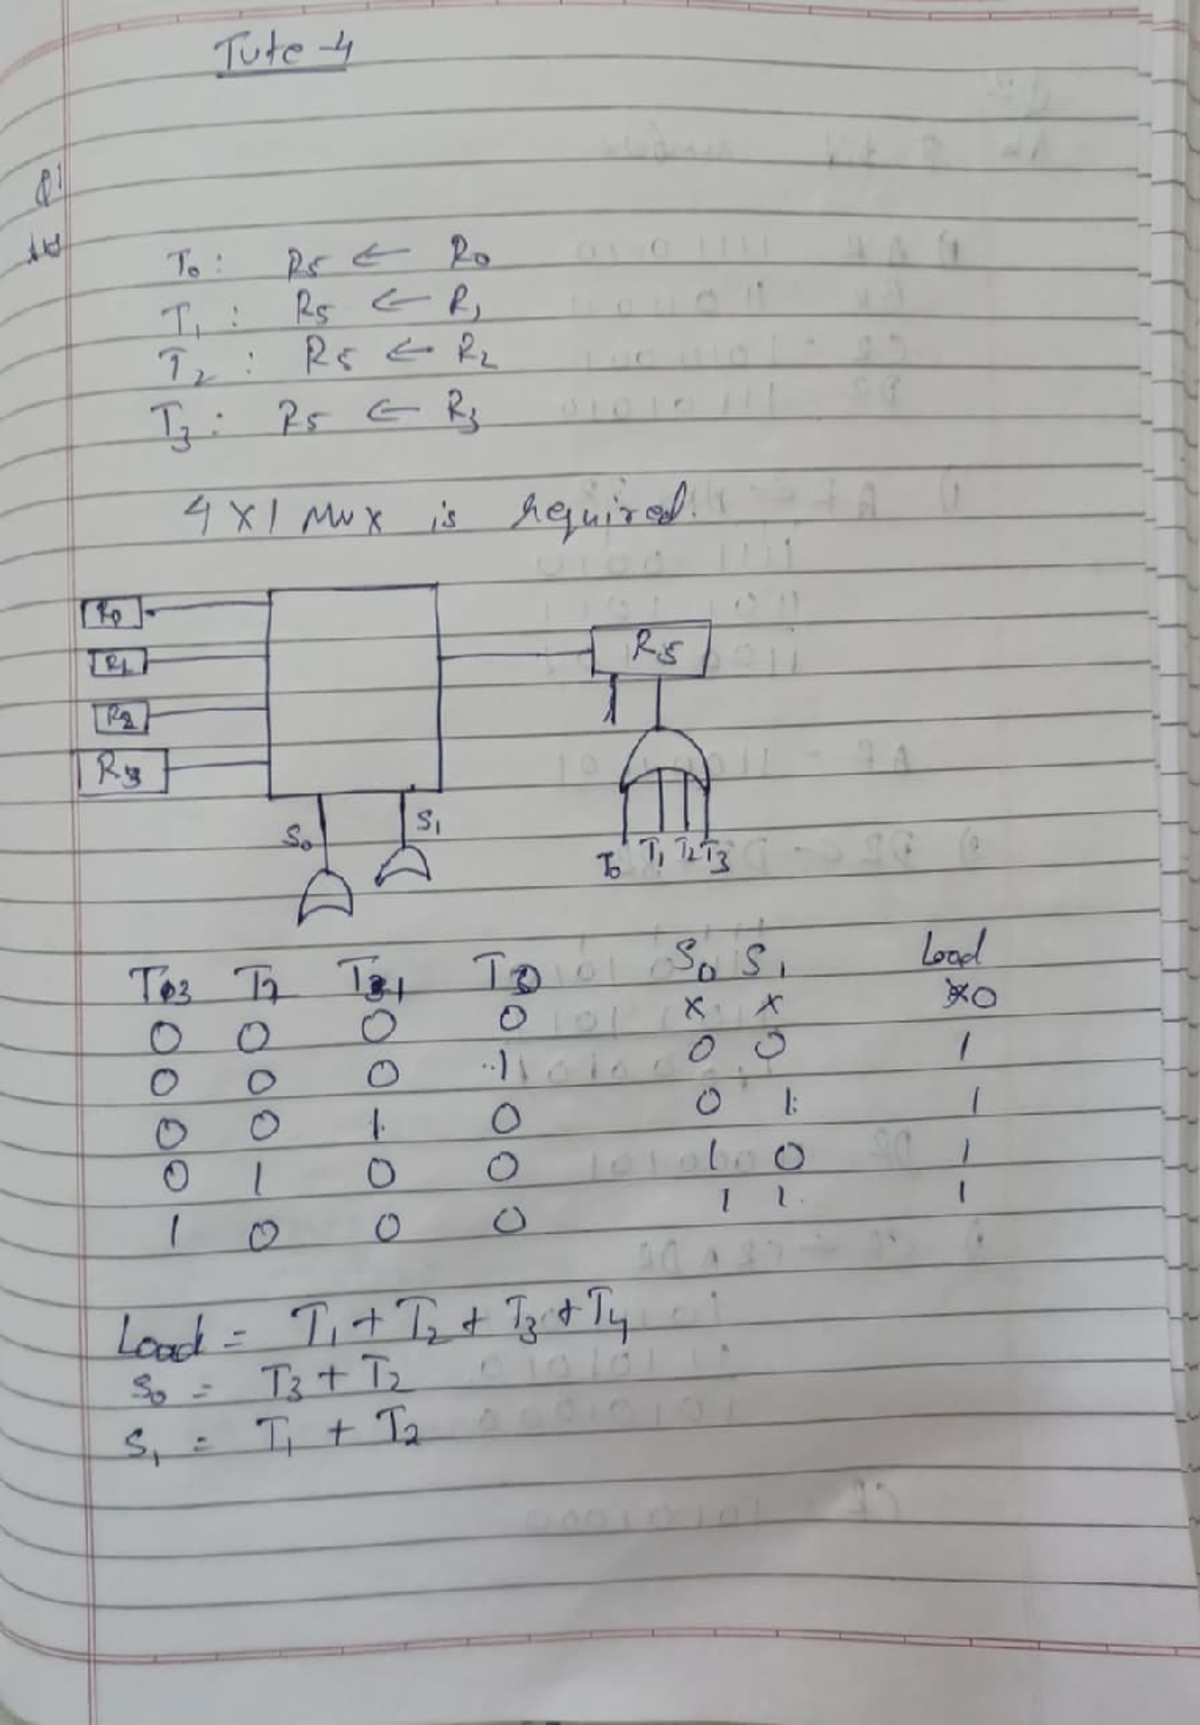 Tute-4
Q1
Ans
T0 : R5 ← R0
T1 : R5 ← R1
T2 : R5 ← R2
T3 : R5 ← R3
4 X 1 Mux is required.
R0
R1
R2
R3
R5
S0 S1
T0 T1 T2 T3
T3 T2 T1 T0 S0 S1 Load
0 0 0 0 x x 0
0 0 0 1 0 0 1
0 0 1 0 0 1 1
0 1 0 0 1 0 1
1 0 0 0 1 1 1
Load = T1 + T2 + T3 + T4
S0 = T3 + T2
S1 = T1 + T2